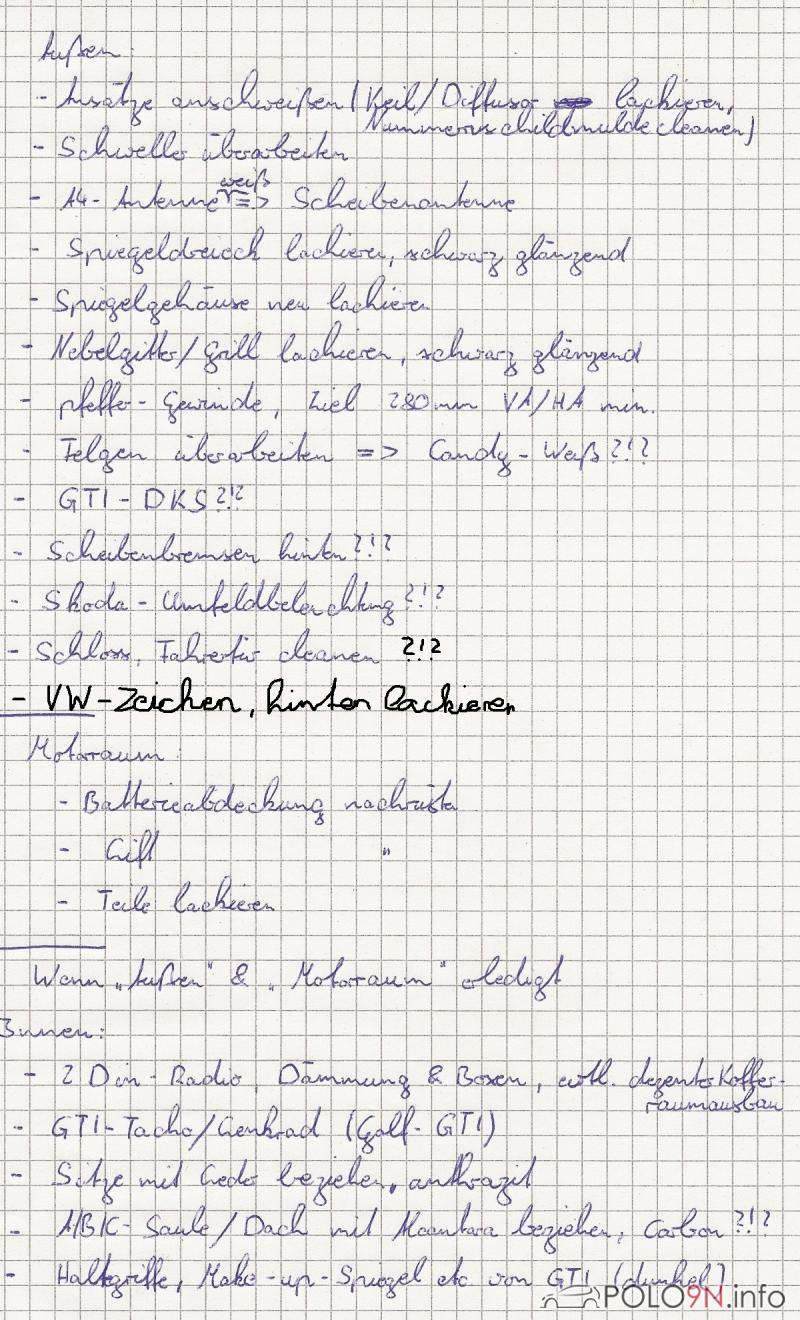 Außen:
- Ansätze anschweißen (Keil/Diffusor lackieren,
Nummernschildmulde cleanen)
- Schweller überarbeiten
weiß
- A4-Antenne => Scheibenantenne
- Spiegeldreieck lackieren, schwarz glänzend
- Spiegelgehäuse neu lackieren
- Nebelgitter/Grill lackieren, schwarz glänzend
- pfeffer-Gewinde, Ziel 280mm VA/HA min.
- Felgen überarbeiten => Candy-Weiß?!?
- GTI-DKS?!?
- Scheibenbremsen hinten?!?
- Skoda-Umfeldbeleuchtung?!?
- Schloss, Fahrertür cleanen ?!?
- VW-Zeichen, hinten lackieren
Motorraum:
- Batterieabdeckung nachrüsten
- Lift "
- Teile lackieren
Wenn „Außen" & „Motorraum" erledigt
Innen:
- 2 Din-Radio, Dämmung & Boxen, evtl. dezenter Koffer-
raumausbau
- GTI-Tacho/Lenkrad (Golf-GTI)
- Sitze mit Leder beziehen, anthrazit
- A/B/C-Säule/Dach mit Alcantara beziehen, Carbon ?!?
- Haltegriffe, Make-up-Spiegel etc von GTI (dunkel)
POLO9N.info